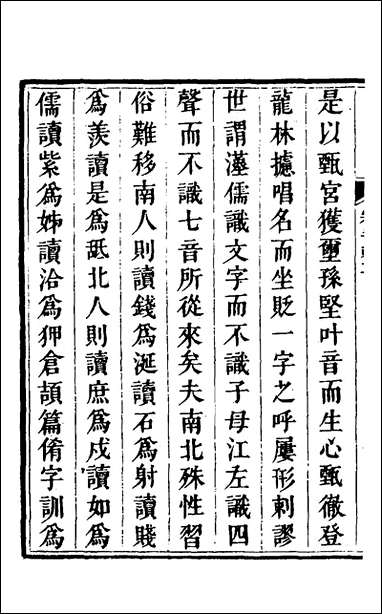 是以甄宮獲璽孫堅叶音而生心甄徹登
龍林攄唱名而坐貶一字之呼屢形刺謬
世謂漢儒識文字而不識子母江左識四
聲而不識七音所從來矣夫南北殊性習
俗難移南人則讀錢為涎讀石為射讀賤
為羨讀是為䑛北人則讀庶為戍讀如為
儒讀紫為姊讀洽為狎倉頡篇倄字訓為